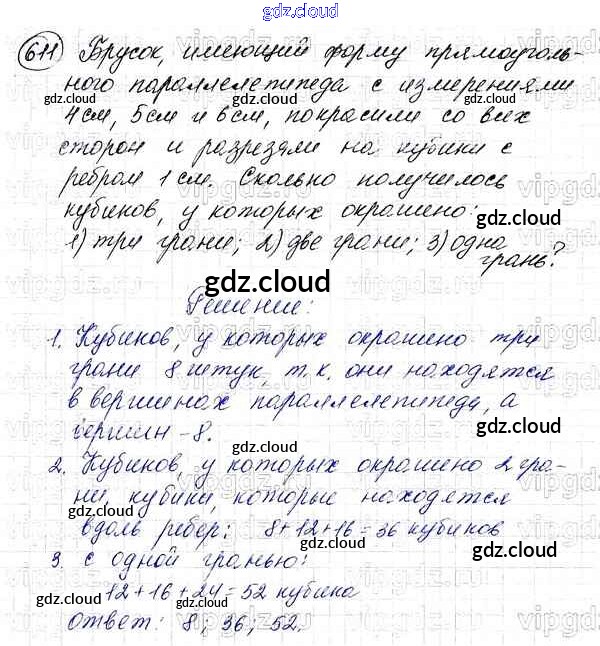 gdz.cloud
611 Брусок, имеющий форму прямоуголь-
ного параллелепипеда с измерениями
4 см, 5 см и 6 см, покрасили со всех
сторон и разрезали на кубики с
ребром 1 см. Сколько получилось
кубиков, у которых окрашено:
1) три грани; 2) две грани; 3) одна
грань?
gdz.cloud
Решение:
1. Кубиков, у которых окрашено три
грани 8 штук, т.к. они находятся
в вершинах параллелепипеда, а
вершин - 8.
2. Кубиков, у которых окрашено 2 гра-
ни, кубики, которые находятся
вдоль ребер: 8+12+16=36 кубиков
3. с одной гранью:
12+16+24=52 кубика
ответ: 8; 36; 52.